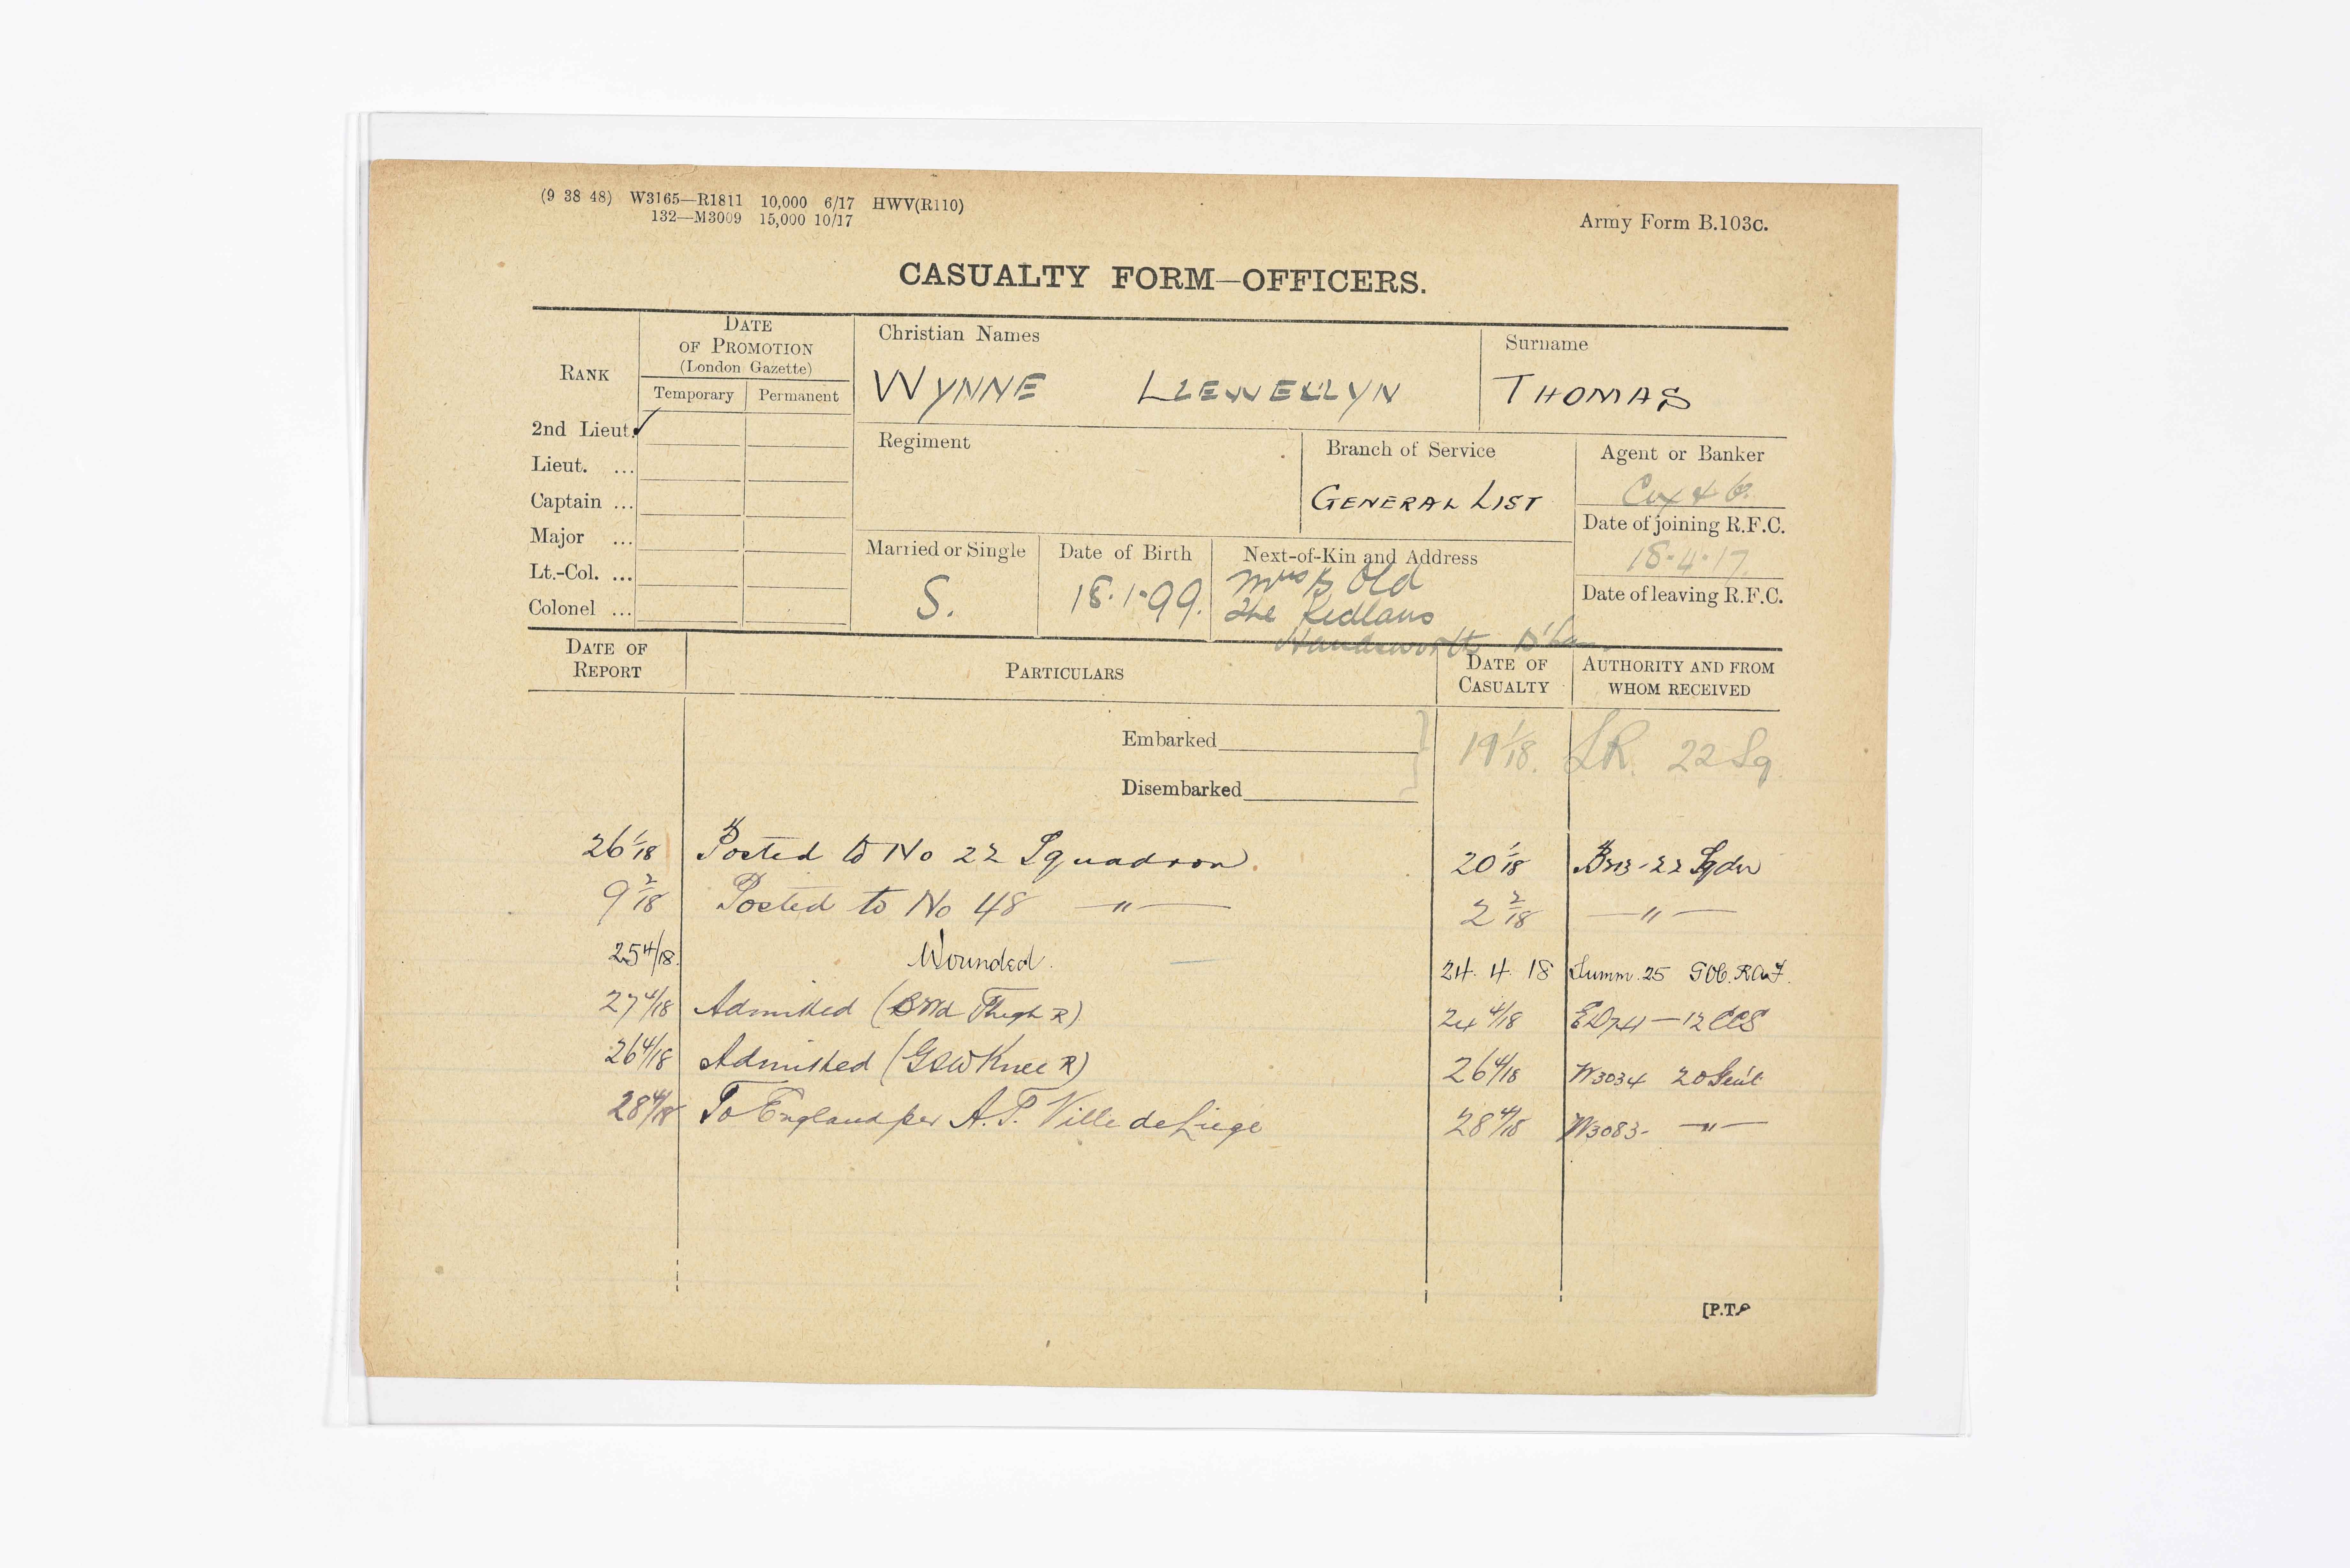 (9 38 48) W3165—R1811 10,000 6/17 HWV(R110)
132—M3009 15,000 10/17
Army Form B.103c.
CASUALTY FORM—OFFICERS.
RANK
DATE OF PROMOTION
(London Gazette)
Temporary Permanent
Christian Names
WYNNE LLEWELLYN
Surname
THOMAS
2nd Lieut. ✓
Lieut. ...
Captain ...
Major ...
Lt.-Col. ...
Colonel ...
Regiment
Branch of Service
GENERAL LIST
Agent or Banker
Cox & Co.
Date of joining R.F.C.
18-4-17
Date of leaving R.F.C.
Married or Single
S.
Date of Birth
18.1.99.
Next-of-Kin and Address
Mrs B Old
The Redlans
Handsworth B'ham
DATE OF REPORT
PARTICULARS
DATE OF CASUALTY
AUTHORITY AND FROM WHOM RECEIVED
Embarked 19 1/18. LR. 22 Sq
Disembarked
26 1/18 Posted to No 22 Squadron. 20 1/18 B213-22 Sqdn
9 2/18 Posted to No 48 —"— 2 2/18 —"—
25 4/18. Wounded. 24. 4. 18 Summ. 25 GOC. RAF.
27 4/18 Admitted ( Thigh R) 24 4/18 — 12 CCS
26 4/18 Admitted (GSW Knee R) 26 4/18 W3034 20 Genl
28 4/18 To England per A.T. Ville de Liege 28 4/18 W3083- —"—
[P.T.O